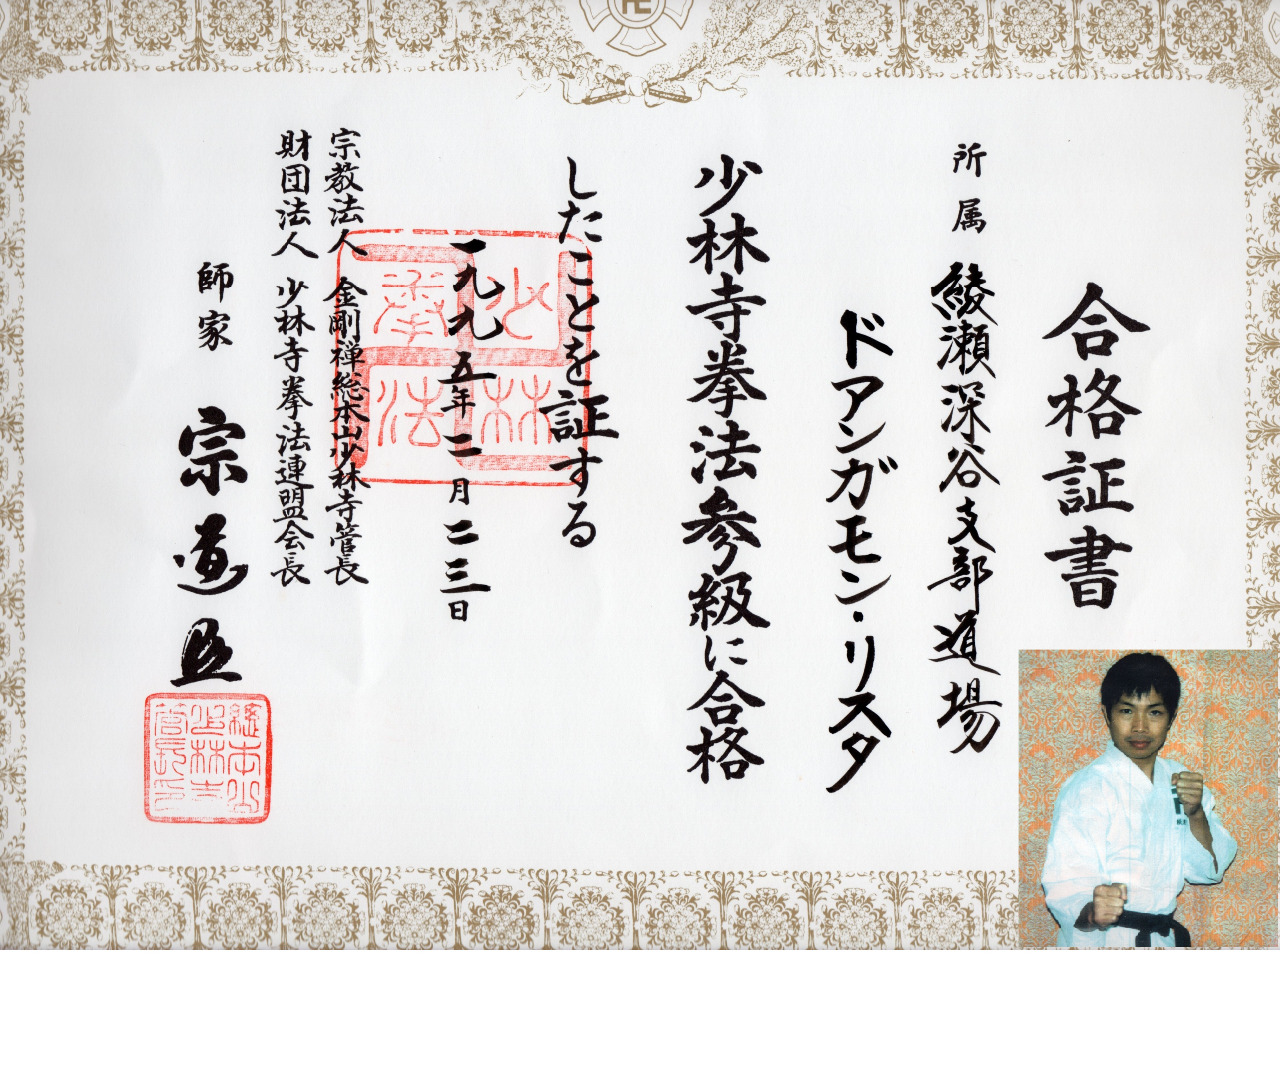 合格証書
所属 綾瀬深谷支部道場
ドアンガモン・リスタ
少林寺拳法参級に合格
したことを証する
一九九五年二月二三日
宗教法人 金剛禅総本山少林寺管長
財団法人 少林寺拳法連盟会長
師家 宗道臣
少林
拳法
総本山
少林寺
管長印